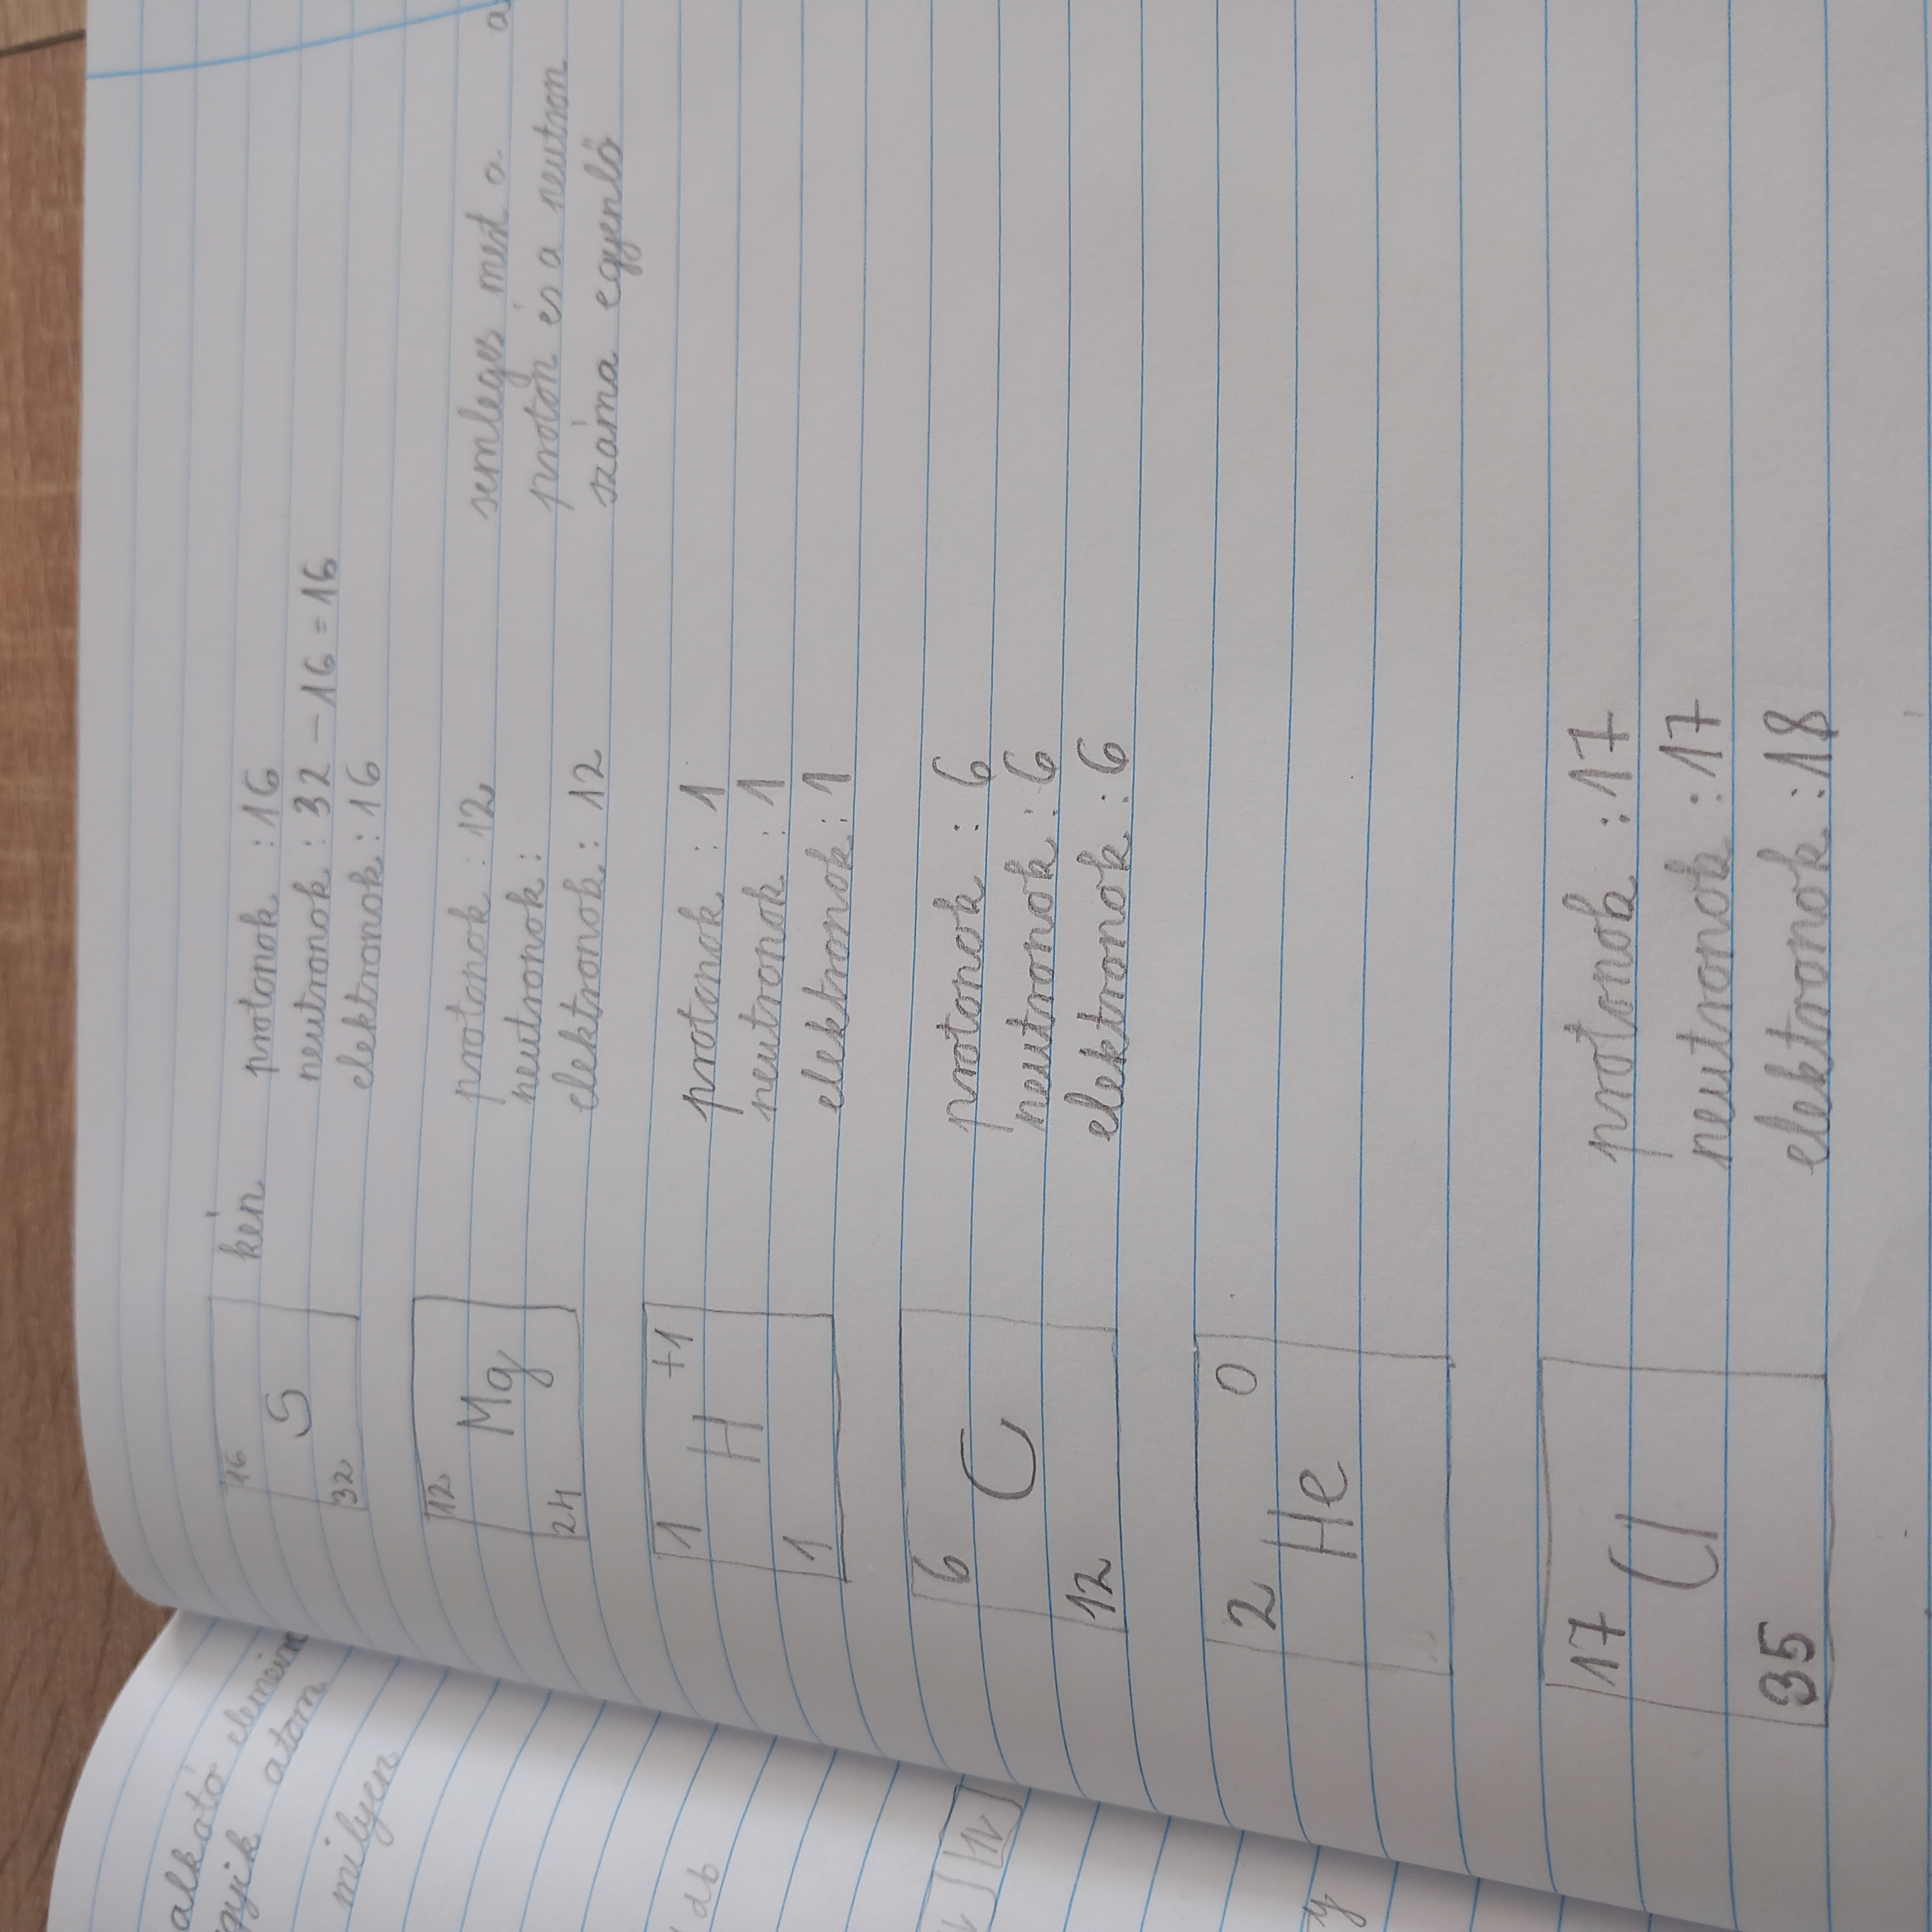 alkotó elemein
gyik atom
milyen
db
16 kén protonok : 16
S neutronok : 32 - 16 = 16
32 elektronok : 16
12 protonok : 12 semleges mert a a
Mg neutronok : proton és a neutron
24 elektronok : 12 száma egyenlő
1 +1 protonok : 1
H neutronok : 1
1 elektronok : 1
6 protonok : 6
C neutronok : 6
12 elektronok : 6
2 0
He
17 protonok : 17
Cl neutronok : 17
35 elektronok : 18